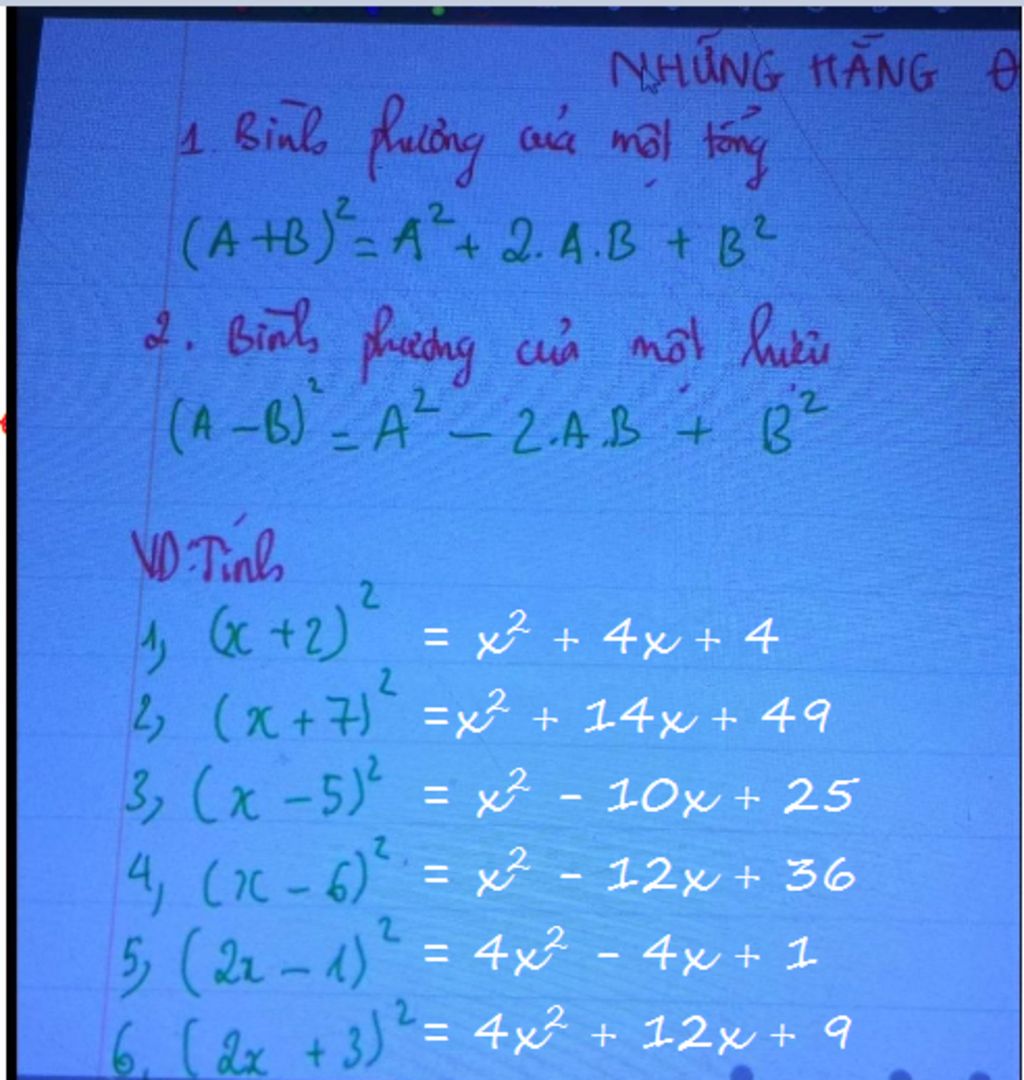 NHỮNG HẰNG Đ
1. Bình phương của một tổng
(A+B)² = A² + 2.A.B + B²
2. Bình phương của một hiệu
(A-B)² = A² - 2.A.B + B²
VD: Tính
1, (x+2)² = x² + 4x + 4
2, (x+7)² = x² + 14x + 49
3, (x-5)² = x² - 10x + 25
4, (x-6)² = x² - 12x + 36
5, (2x-1)² = 4x² - 4x + 1
6, (2x+3)² = 4x² + 12x + 9